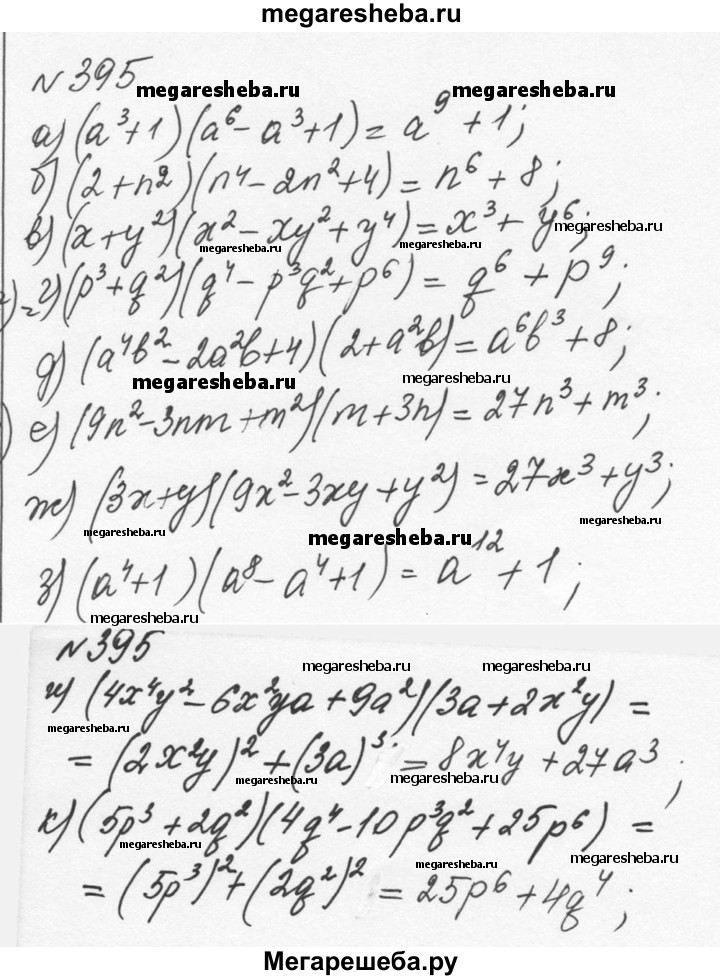 megaresheba.ru
№395
megaresheba.ru megaresheba.ru
а) (a³+1)(a⁶-a³+1)=a⁹+1;
б) (2+n²)(n⁴-2n²+4)=n⁶+8;
в) (x+y²)(x²-xy²+y⁴)=x³+y⁶;
megaresheba.ru megaresheba.ru megaresheba.ru
г) (p³+q²)(q⁴-p³q²+p⁶)=q⁶+p⁹;
д) (a⁴b²-2a²b+4)(2+a²b)=a⁶b³+8;
megaresheba.ru megaresheba.ru
е) (9n²-3nm+m²)(m+3n)=27n³+m³;
ж) (3x+y)(9x²-3xy+y²)=27x³+y³;
megaresheba.ru megaresheba.ru megaresheba.ru
з) (a⁴+1)(a⁸-a⁴+1)=a¹²+1;
megaresheba.ru
№395
megaresheba.ru megaresheba.ru
и) (4x⁴y²-6x²ya+9a²)(3a+2x²y)=
megaresheba.ru
=(2x²y)²+(3a)³=8x⁴y+27a³;
megaresheba.ru megaresheba.ru
к) (5p³+2q²)(4q⁴-10p³q²+25p⁶)=
megaresheba.ru megaresheba.ru
=(5p³)²+(2q²)²=25p⁶+4q⁴;
megaresheba.ru
Мегарешеба.ру